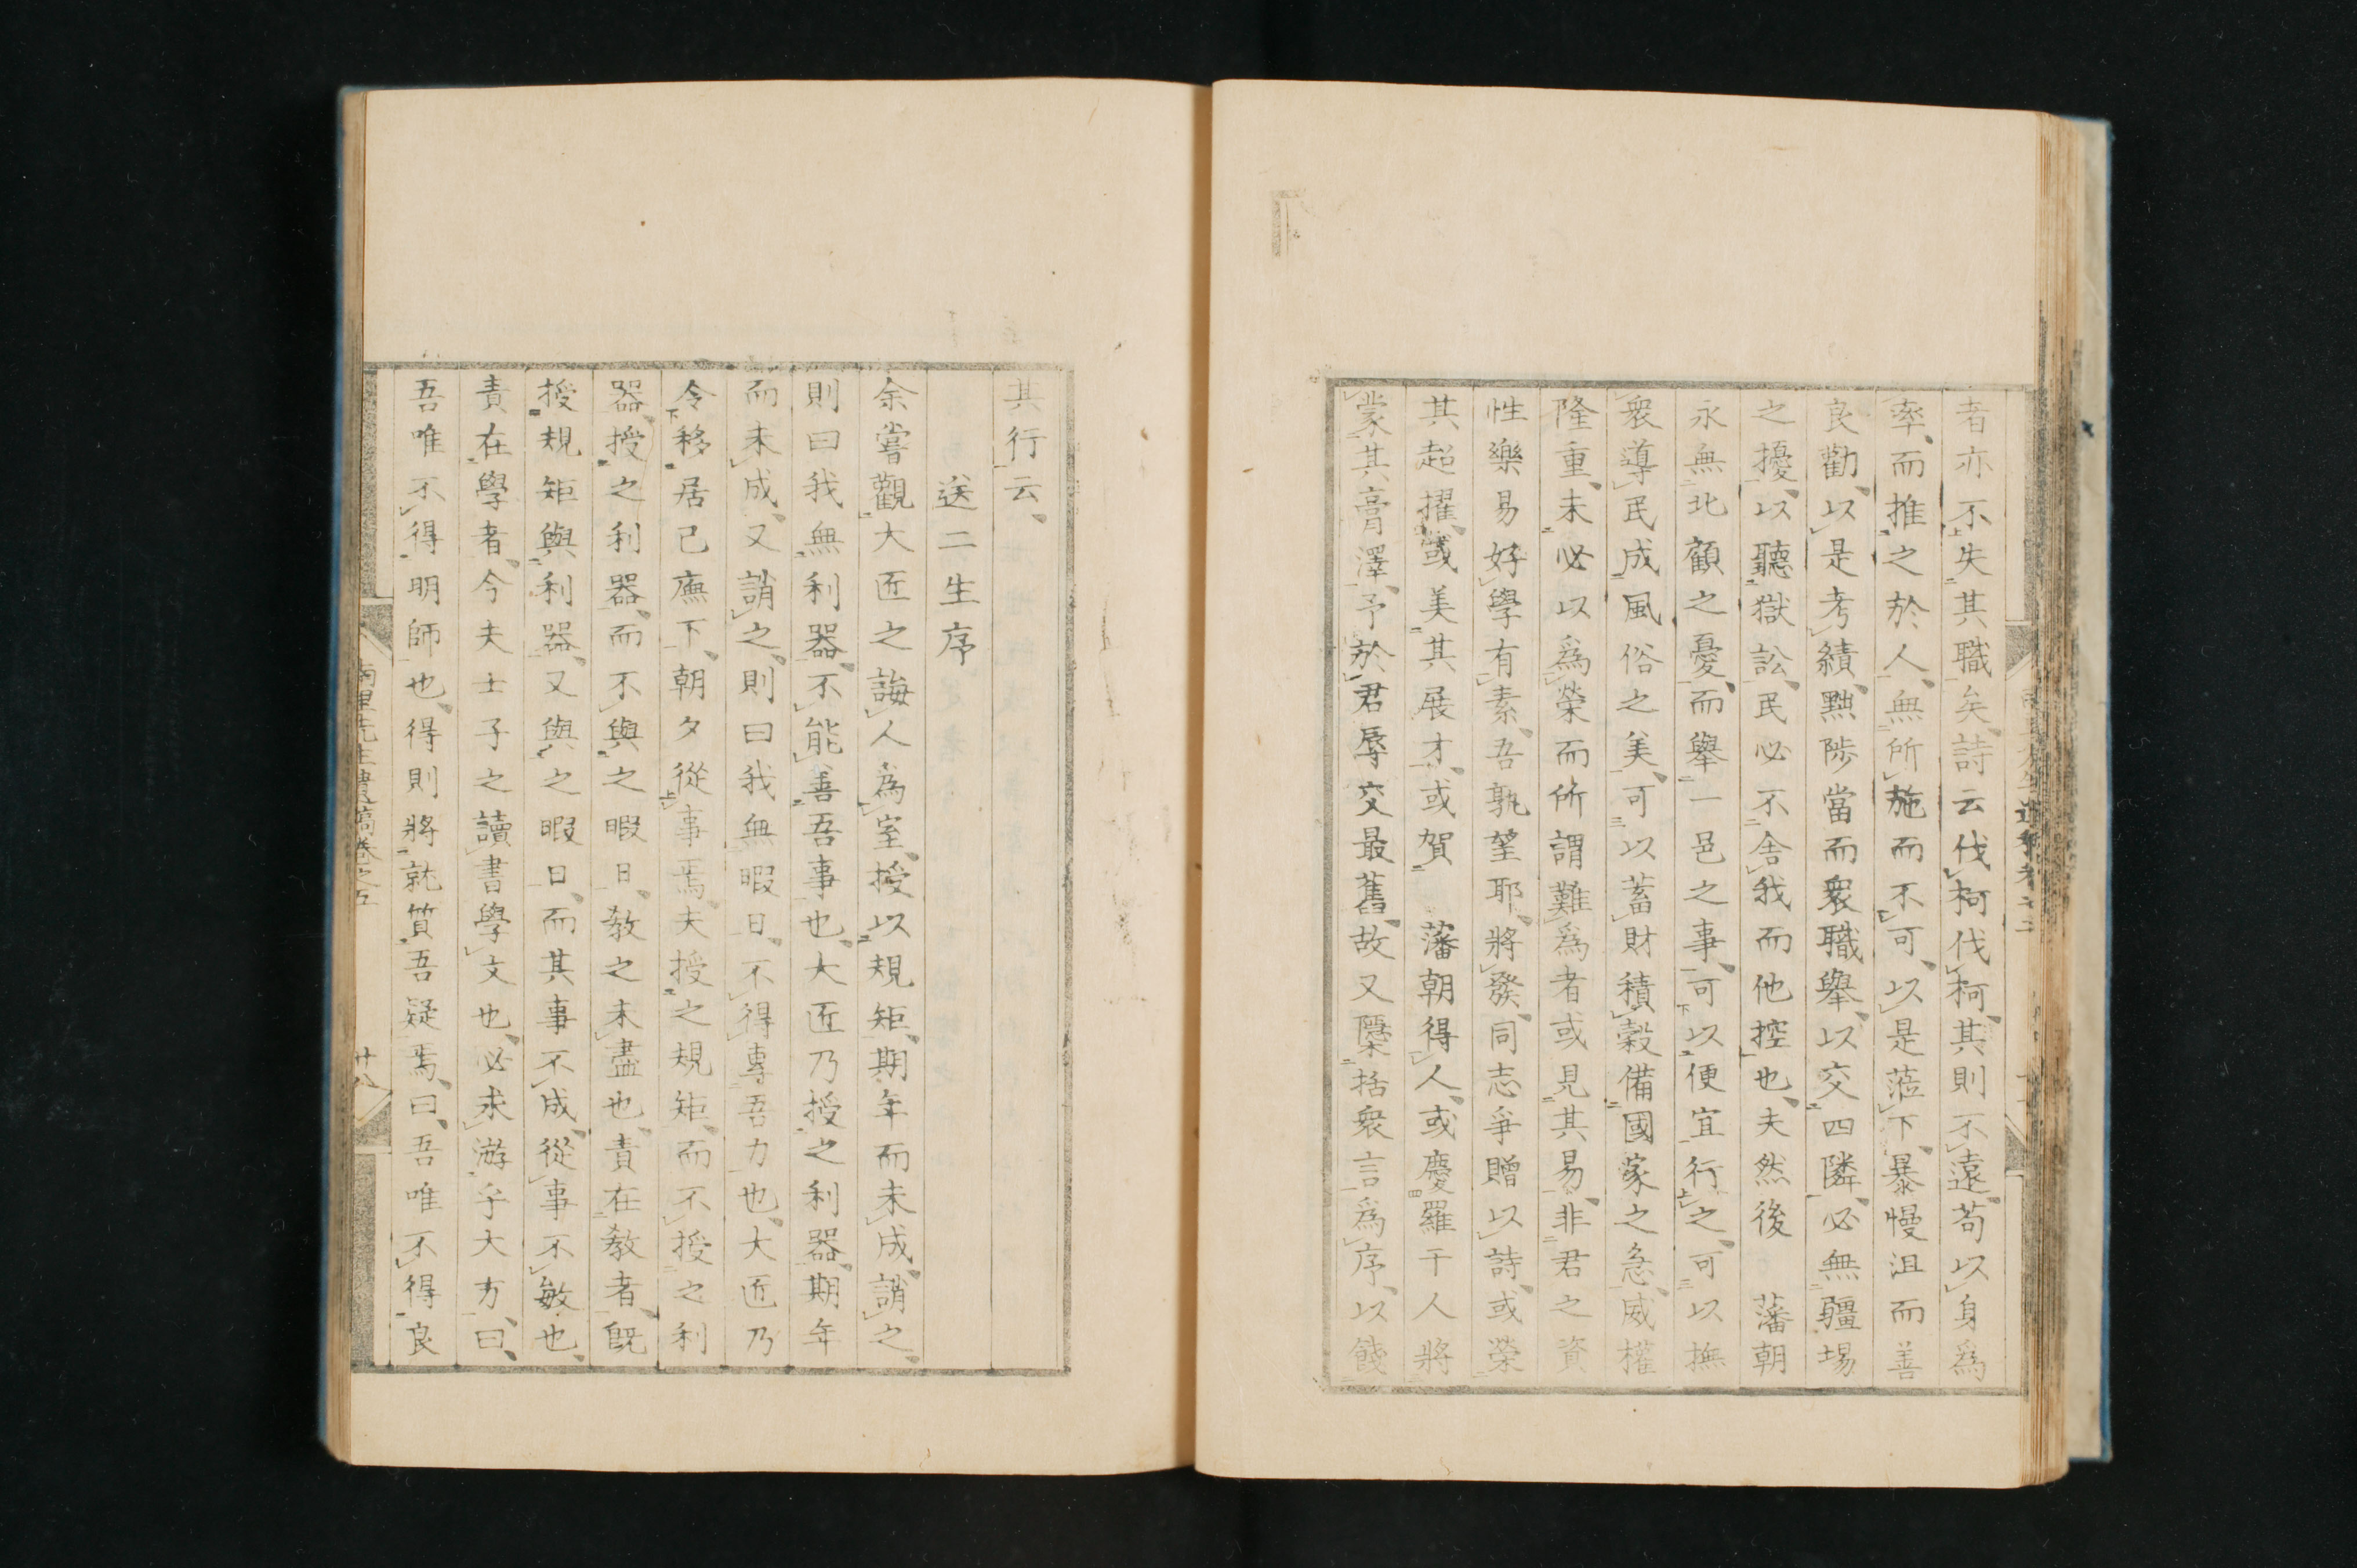 者亦不失其職矣、詩云伐柯伐柯、其則不遠、苟以身爲
率、而推之於人、無所施而不可、以是蒞下、暴慢沮而善
良勸、以是考績、黜陟當而衆職舉、以交四隣、必無疆場
之擾、以聽獄訟、民必不舍我而他控也、夫然後　藩朝
永無北顧之憂、而舉一邑之事、可以便宜行之、可以撫
衆導民成風俗之美、可以蓄財積穀備國家之急、威權
隆重、未必以爲榮而所謂難爲者或見其易、非君之資
性樂易好學有素、吾孰望耶、將發、同志爭贈以詩、或榮
其超擢、或美其展才、或賀　藩朝得人、或慶羅干人將
蒙其膏澤、予於君辱交最舊、故又檃括衆言爲序、以餞
其行云、
送二生序
余嘗觀大匠之誨人爲室、授以規矩、期年而未成、誚之、
則曰我無利器、不能善吾事也、大匠乃授之利器、期年
而未成、又誚之、則曰我無暇日、不得專吾力也、大匠乃
令移居己廡下、朝夕從事焉、夫授之規矩、而不授之利
器、授之利器、而不與之暇日、教之未盡也、責在教者、既
授規矩與利器、又與之暇日、而其事不成、從事不敏也、
責在學者、今夫士子之讀書學文也、必求游乎大方、曰、
吾唯不得明師也、得則將就質吾疑焉、曰、吾唯不得良
南里先生遺稿卷之五
廿八